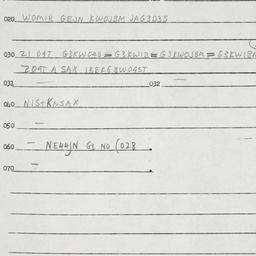 020 WOMIK GEJN KWOJBM JAG3035
030 21 04T G3KW04B = G3KWIB = G3KWOJBM = G3KWIBM
204T A SAX
031 — 032 —
040 NIS+KNSAX
050 —
060 — NE44JN G1 NO (028 .
070 — .